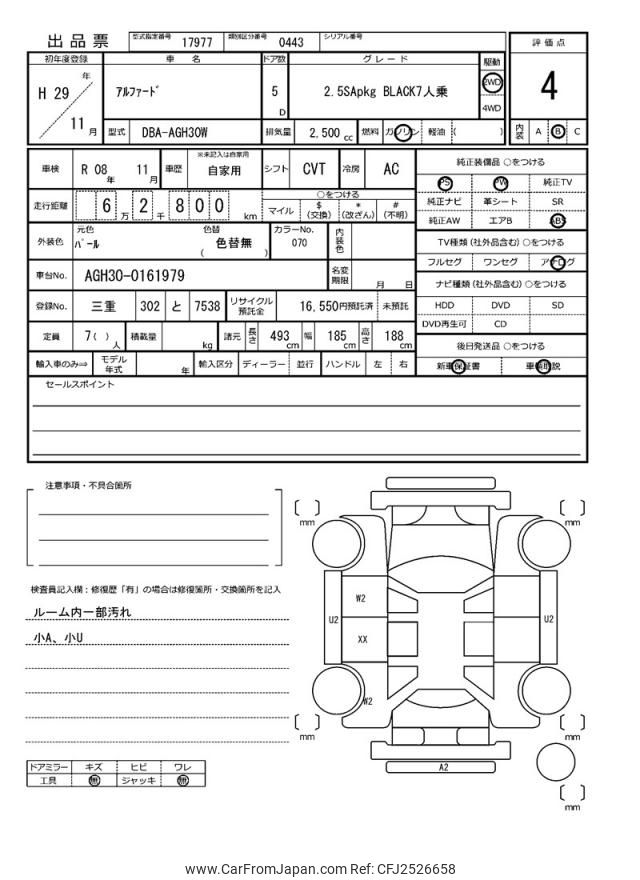 出品票 型式指定番号 17977 類別区分番号 0443 シリアル番号
初年度登録 車名 ドア数 グレード 駆動 評価点
H 29 年 11 月 アルファード 5 D 2.5SApkg BLACK7人乗 2WD 4WD 4
型式 DBA-AGH30W 排気量 2,500 cc 燃料 ガソリン 軽油 ( ) 内装 A B C
車検 R 08 年 11 月 車歴 ※未記入は自家用 自家用 シフト CVT 冷房 AC
走行距離 6 万 2 千 8 0 0 km ○をつける
マイル $ (交換) * (改ざん) # (不明)
外装色 元色 パール 色替 色替無 ( ) カラーNo. 070 内装色
車台No. AGH30-0161979 名変期限 月 日
登録No. 三重 302 と 7538 リサイクル預託金 16,550円預託済 未預託
定員 7( ) 人 積載量 kg 諸元 長さ 493 cm 幅 185 cm 高さ 188 cm
輸入車のみ⇒ モデル年式 年 輸入区分 ディーラー 並行 ハンドル 左 右
純正装備品 ○をつける
PS PW 純正TV
純正ナビ 革シート SR
純正AW エアB ABS
TV種類 (社外品含む) ○をつける
フルセグ ワンセグ アナログ
ナビ種類 (社外品含む) ○をつける
HDD DVD SD
DVD再生可 CD
後日発送品 ○をつける
新車保証書 車輌取説
セールスポイント
注意事項・不具合箇所
検査員記入欄：修復歴「有」の場合は修復箇所・交換箇所を記入
ルーム内一部汚れ
小A、小U
ドアミラー キズ ヒビ ワレ
工具 無 ジャッキ 無
[ ] mm [ ] mm
W2
U2 U2
XX
W2
[ ] mm [ ] mm
A2
[ ] mm
www.CarFromJapan.com Ref: CFJ2526658